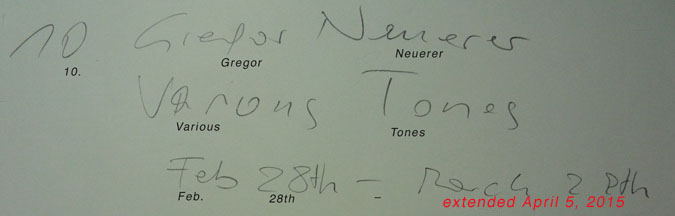 10 Gregor Neuerer
10. Gregor Neuerer
Various Tones
Various Tones
Feb 28th – March 28th
Feb. 28th – extended April 5, 2015